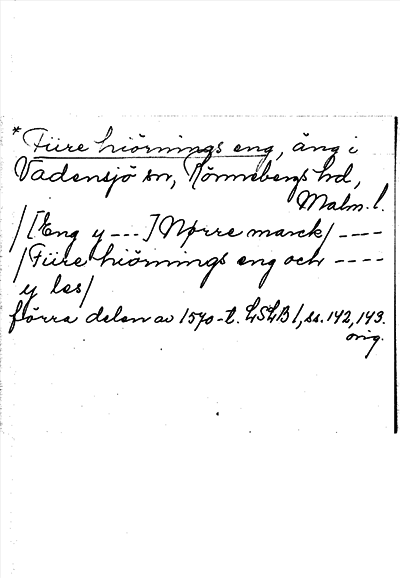 * Fiire hiörnings eng, äng i
Vadensjö sn, Rönnebergs hd,
Malm. l.
/[Eng y ---] Nørre marck/ ----
/Fiire hiörnings eng och ----
y les/
förra delen av 1570-t. LSLB 1, ss. 142, 143.
orig.